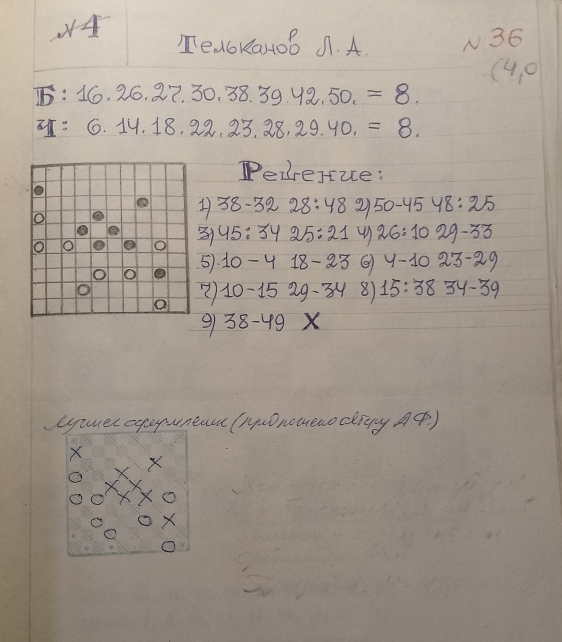 №4
Тельканов Л.А.
№ 36
(4,0
Б: 16.26.27.30.38.39.42.50. = 8.
Ч: 6.14.18.22.23.28.29.40. = 8.
Решение:
1) 38-32 28:48 2) 50-45 48:25
3) 45:34 25:21 4) 26:10 29-33
5) 10-4 18-23 6) 4-10 23-29
7) 10-15 29-34 8) 15:38 34-39
9) 38-49 X
Лучшее оформление (предложено автору А.Ф.)